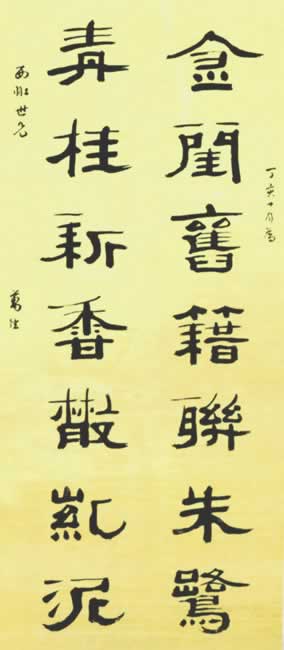 丁亥十月
金閨舊籍聯朱鷺
青桂新香散紫泥
世兄